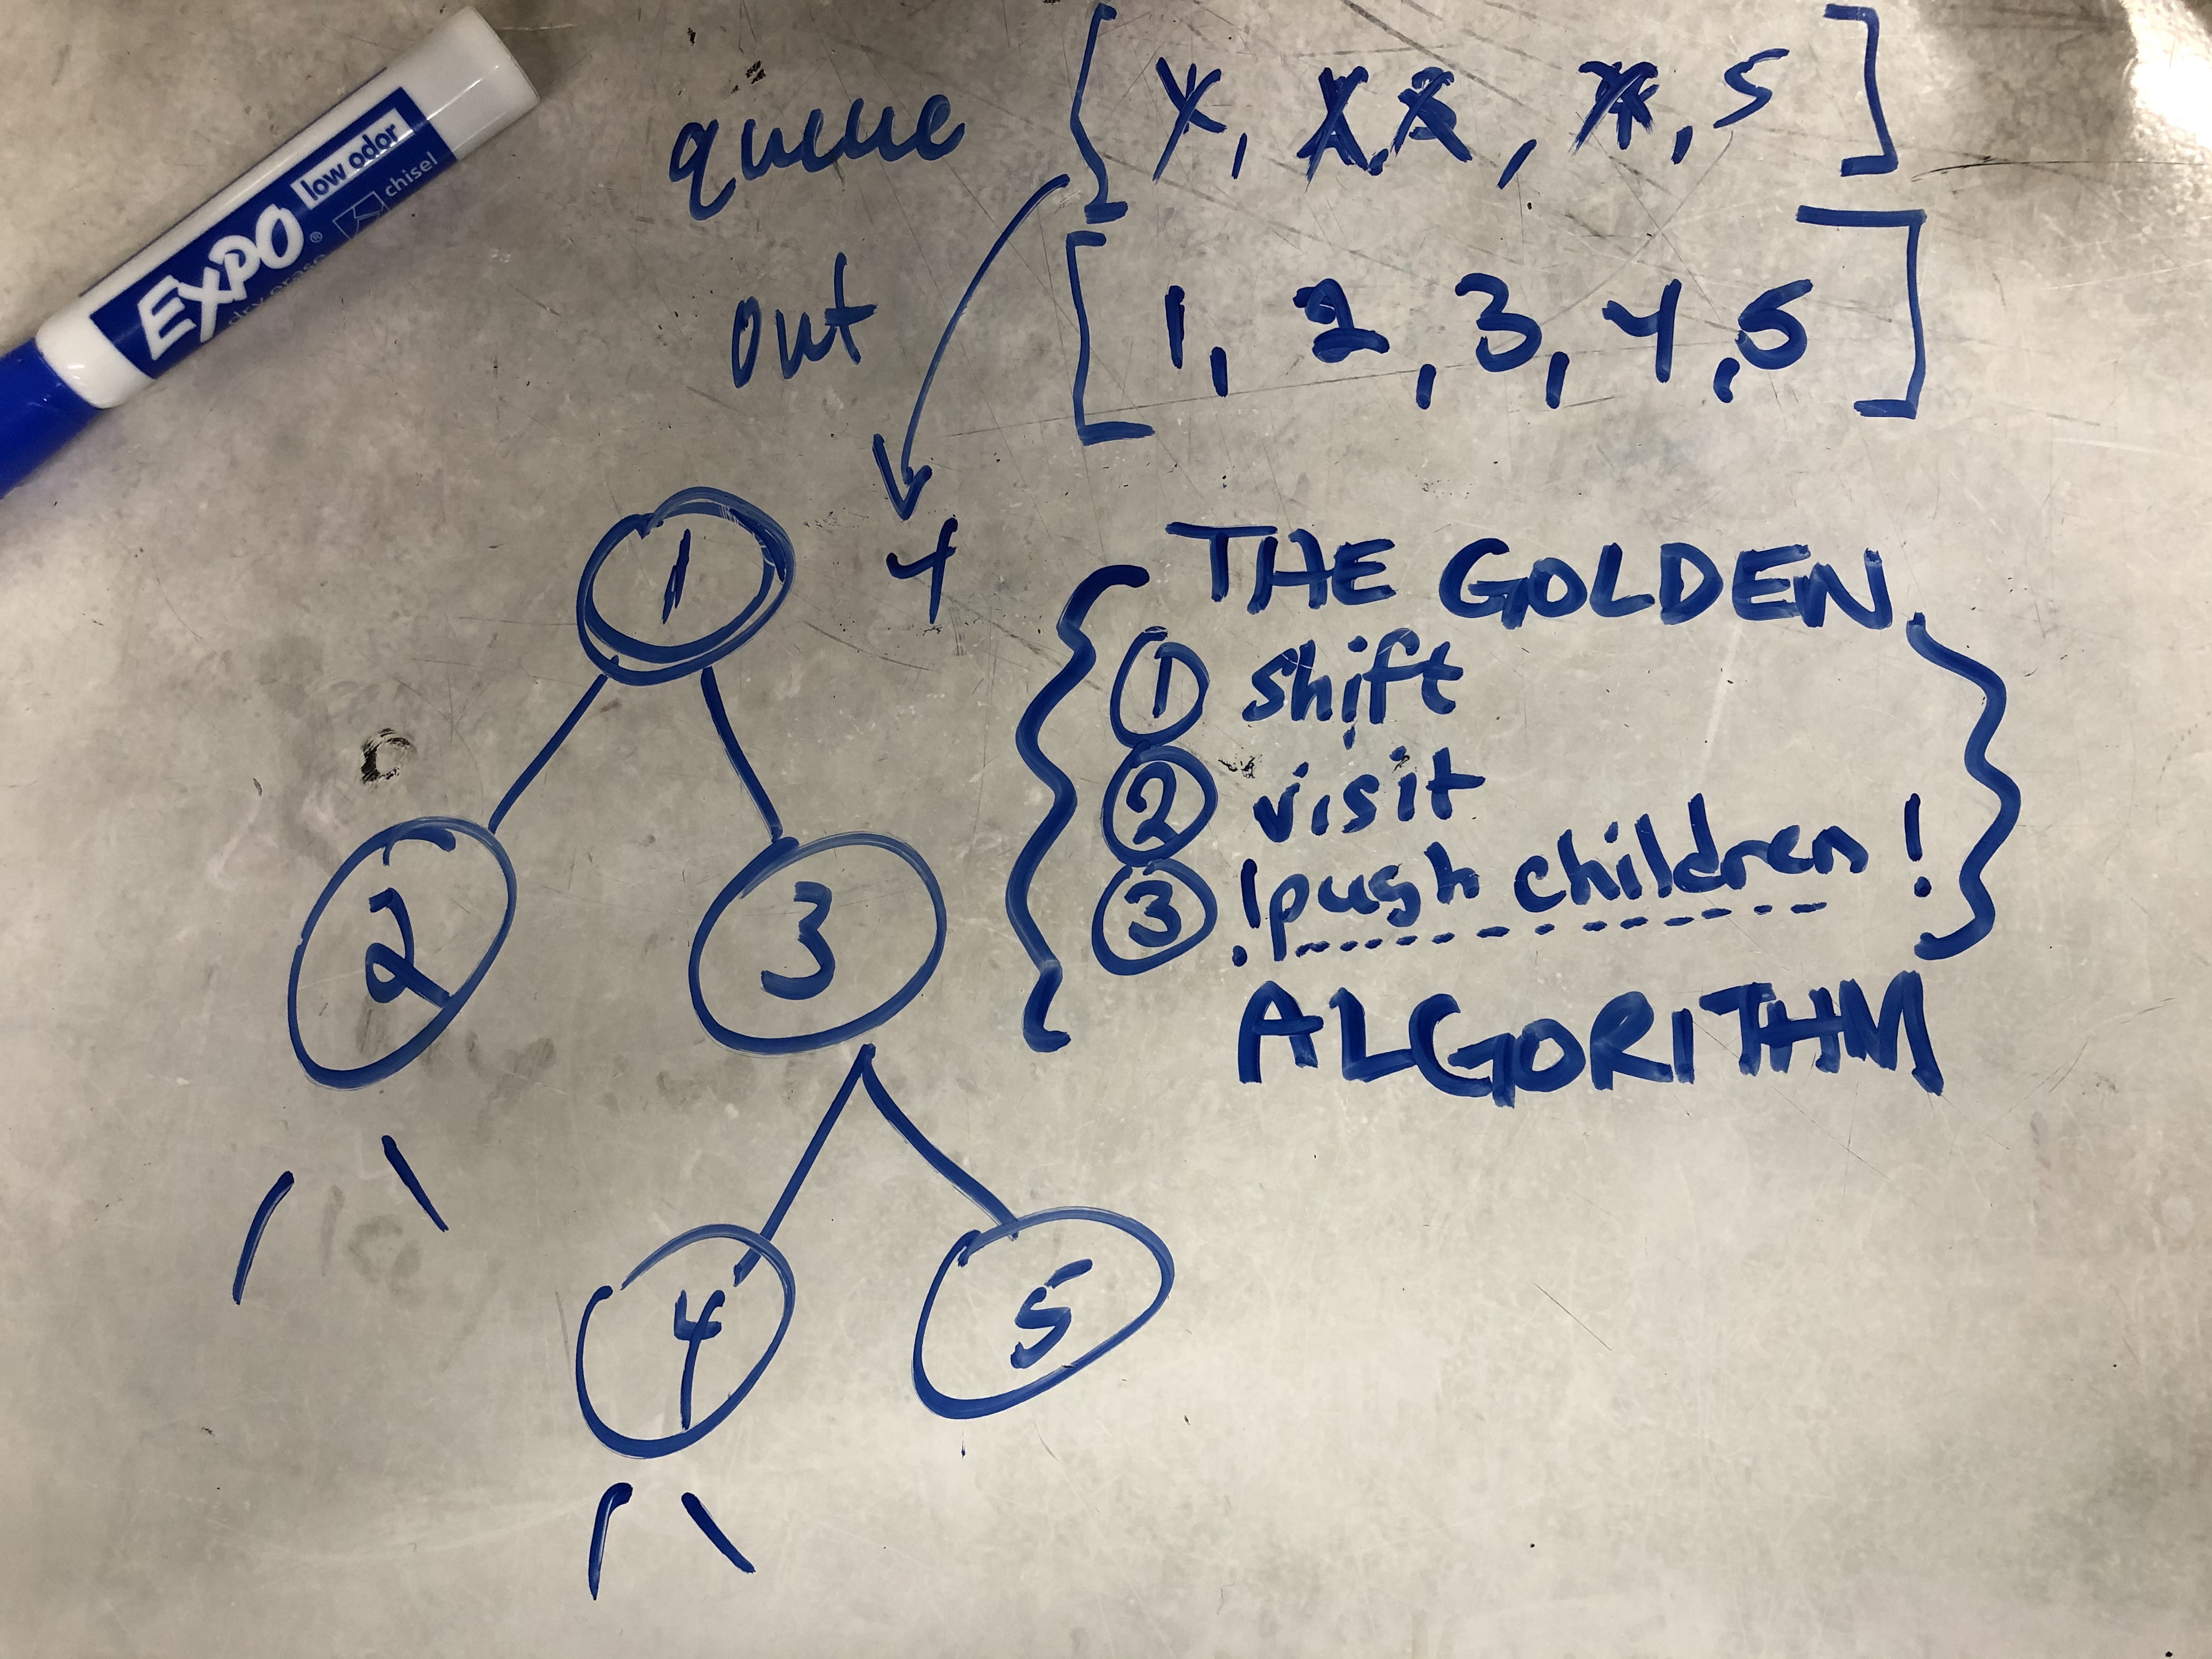 EXPO® low odor
dry erase chisel
queue [1, 2, 3, 4, 5]
out [1, 2, 3, 4, 5]
4
1
THE GOLDEN
1 shift
2 visit
3 !push children!
ALGORITHM
2
3
4
5